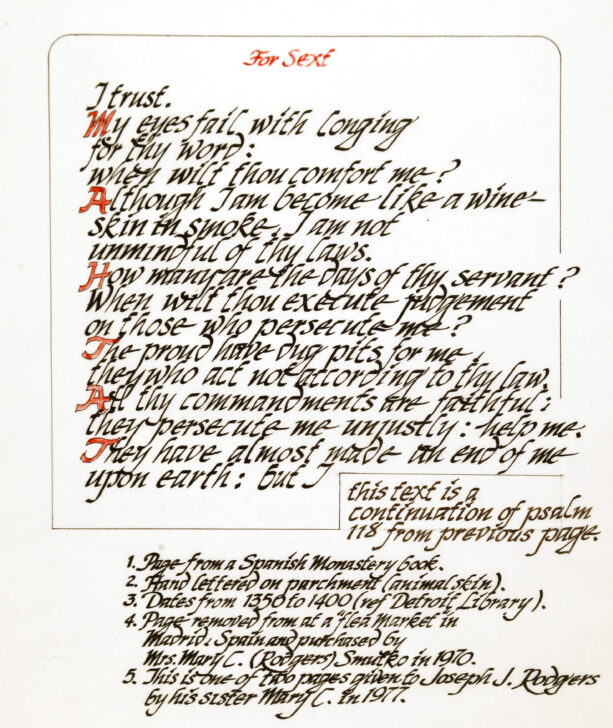 For Sext
I trust.
My eyes fail with longing
for thy word:
when wilt thou comfort me?
Although I am become like a wine-
skin in smoke, I am not
unmindful of thy laws.
How many are the days of thy servant?
When wilt thou execute judgement
on those who persecute me?
The proud have dug pits for me,
they who act not according to thy law.
All thy commandments are faithful;
they persecute me unjustly: help me.
They have almost made an end of me
upon earth: but I
this text is a
continuation of psalm
118 from previous page.
1. Page from a Spanish Monastery book.
2. Hand lettered on parchment (animal skin).
3. Dates from 1350 to 1400 (ref Detroit Library).
4. Page removed from at a "flea Market in
Madrid, Spain and purchased by
Mrs. Mary C. (Rodgers) Smutko in 1970.
5. This is one of two pages given to Joseph J. Rodgers
by his sister Mary C. in 1977.